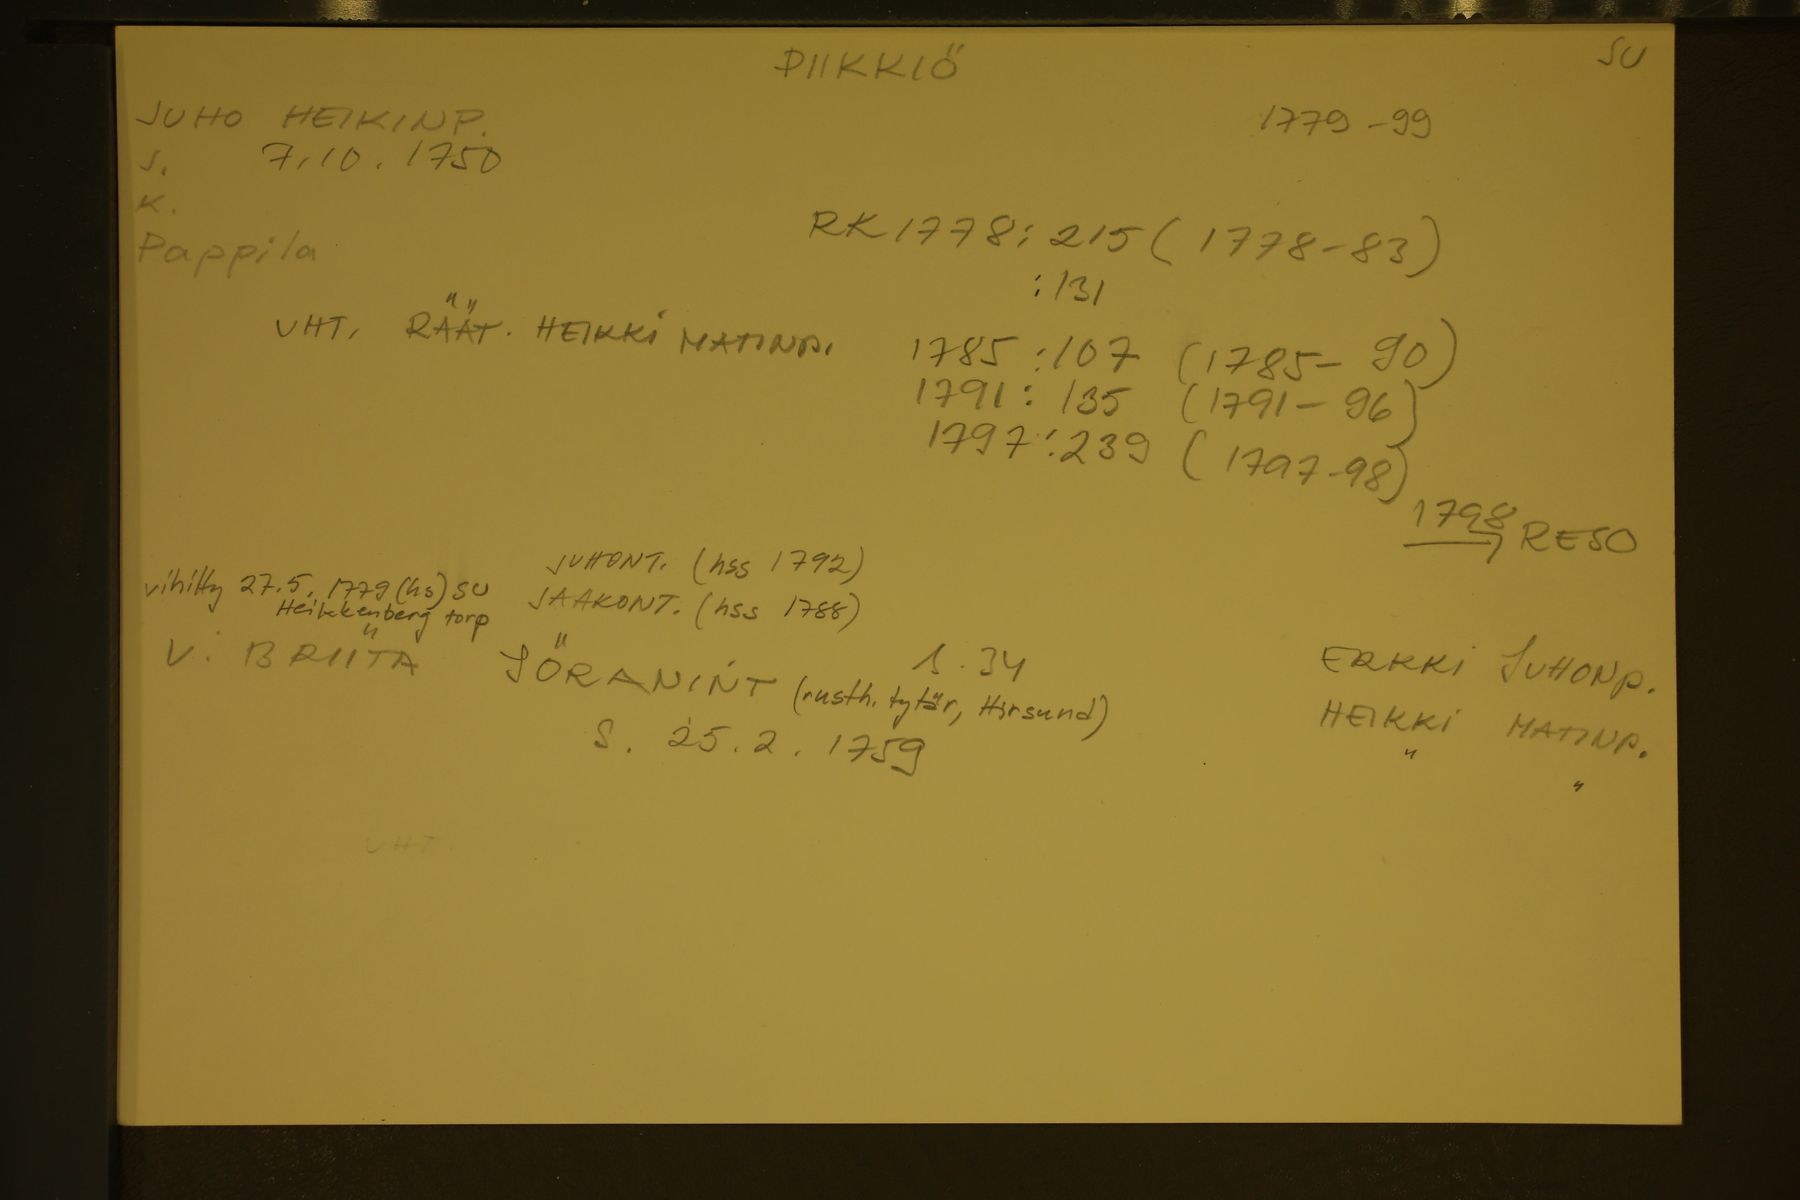 PIIKKIÖ
SU
JUHO HEIKINP.
1779-99
S. 7.10.1750
K.
Pappila
RK 1778: 215 (1778-83)
:131
VHT. RÄÄT. HEIKKI MATINP.
1785 :107 (1785-90)
1791: 135 (1791-96)
1797:239 (1797-98)
1798 → RESO
JUHONT. (hss 1792)
vihitty 27.5.1779 (hs) SU
JAAKONT. (hss 1788)
Heikkenberg torp
V. BRIITA JÖRANINT (rusth. tytär, Hirsund)
1.34
S. 25.2.1759
ERKKI JUHONP.
HEIKKI MATINP.
" "
VHT.